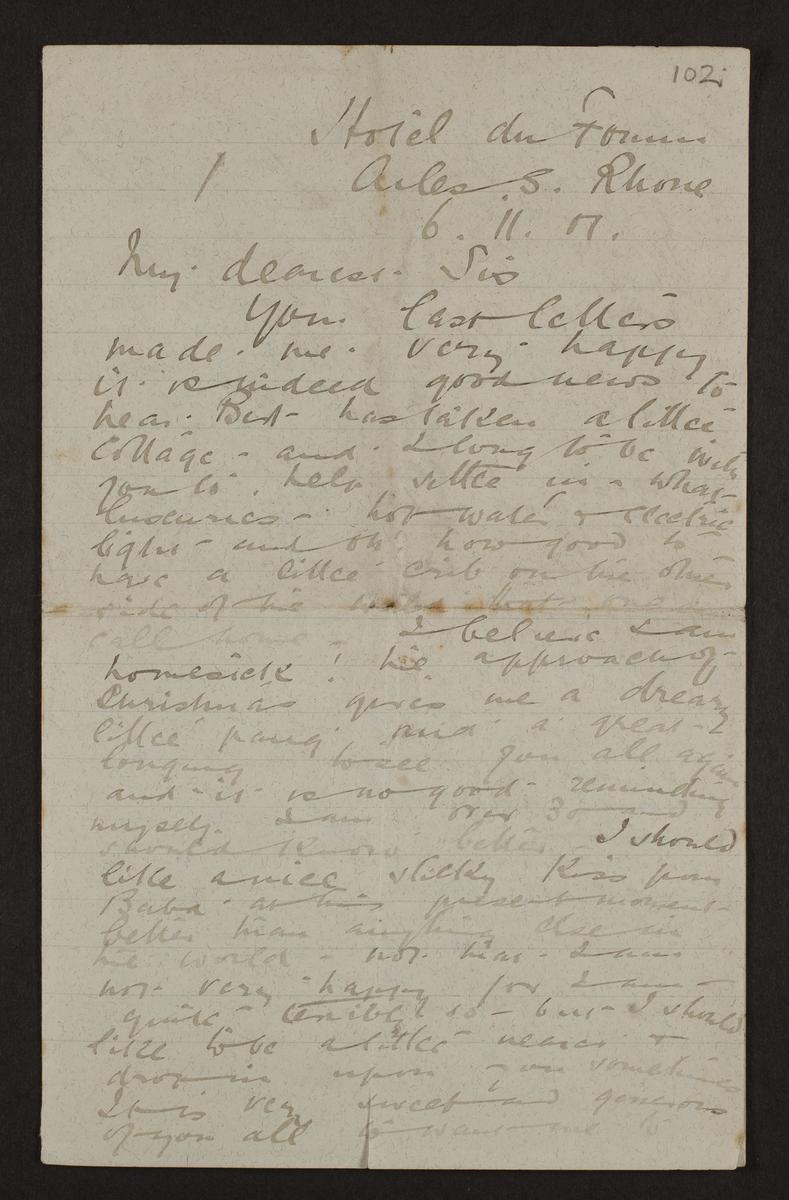 102
Hotel du Forum
/ Arles S. Rhone
6. 11. 01.
My dearest Sis
Your last letters
made me very happy
it is indeed good news to
hear Bert has taken a little
cottage - and I long to be with
you to help settle in - what
luxuries - hot water & electric
light - and oh how good to
have a little crib on the other
side of the that one can
call home - I believe I am
homesick! the approach of
Christmas gives me a dreary
little pang and a great
longing to see you all again
and it is no good reminding
myself I am over 30 and
should know better I should
like a nice sticky kiss from
Baba at this present moment
better than anything else in
the world - not that I am
not very happy for I am
quite terribly so - but I should
like to be a little nearer &
drop in upon you sometimes
It is very sweet and generous
of you all to want me to